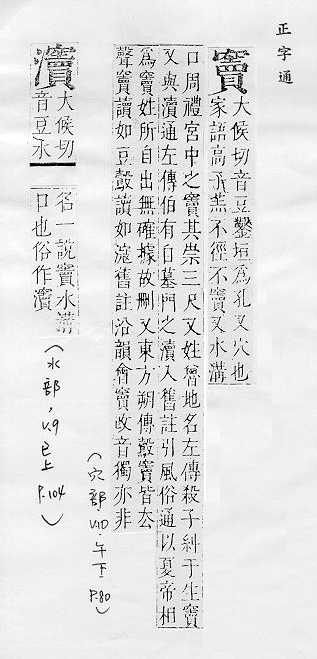 正字通
竇
大候切音豆鑿垣為孔又穴也
家語高柴不徑不竇又水溝
口周禮宮中之竇其崇三尺又姓魯地名左傳殺子糾于生竇
又與瀆通左傳伯有自墓門之瀆入舊註引風俗通以夏帝相
為竇姓所自出無確據故刪又東方朔傳鷇竇皆去
聲竇讀如豆鷇讀如滱舊註沿韻會竇改音獨亦非
(穴部,V10.午下 P.80)
瀆
大候切
音豆水
名一說竇水溝
口也俗作瀆
(水部,V.9 巳上 P.104)